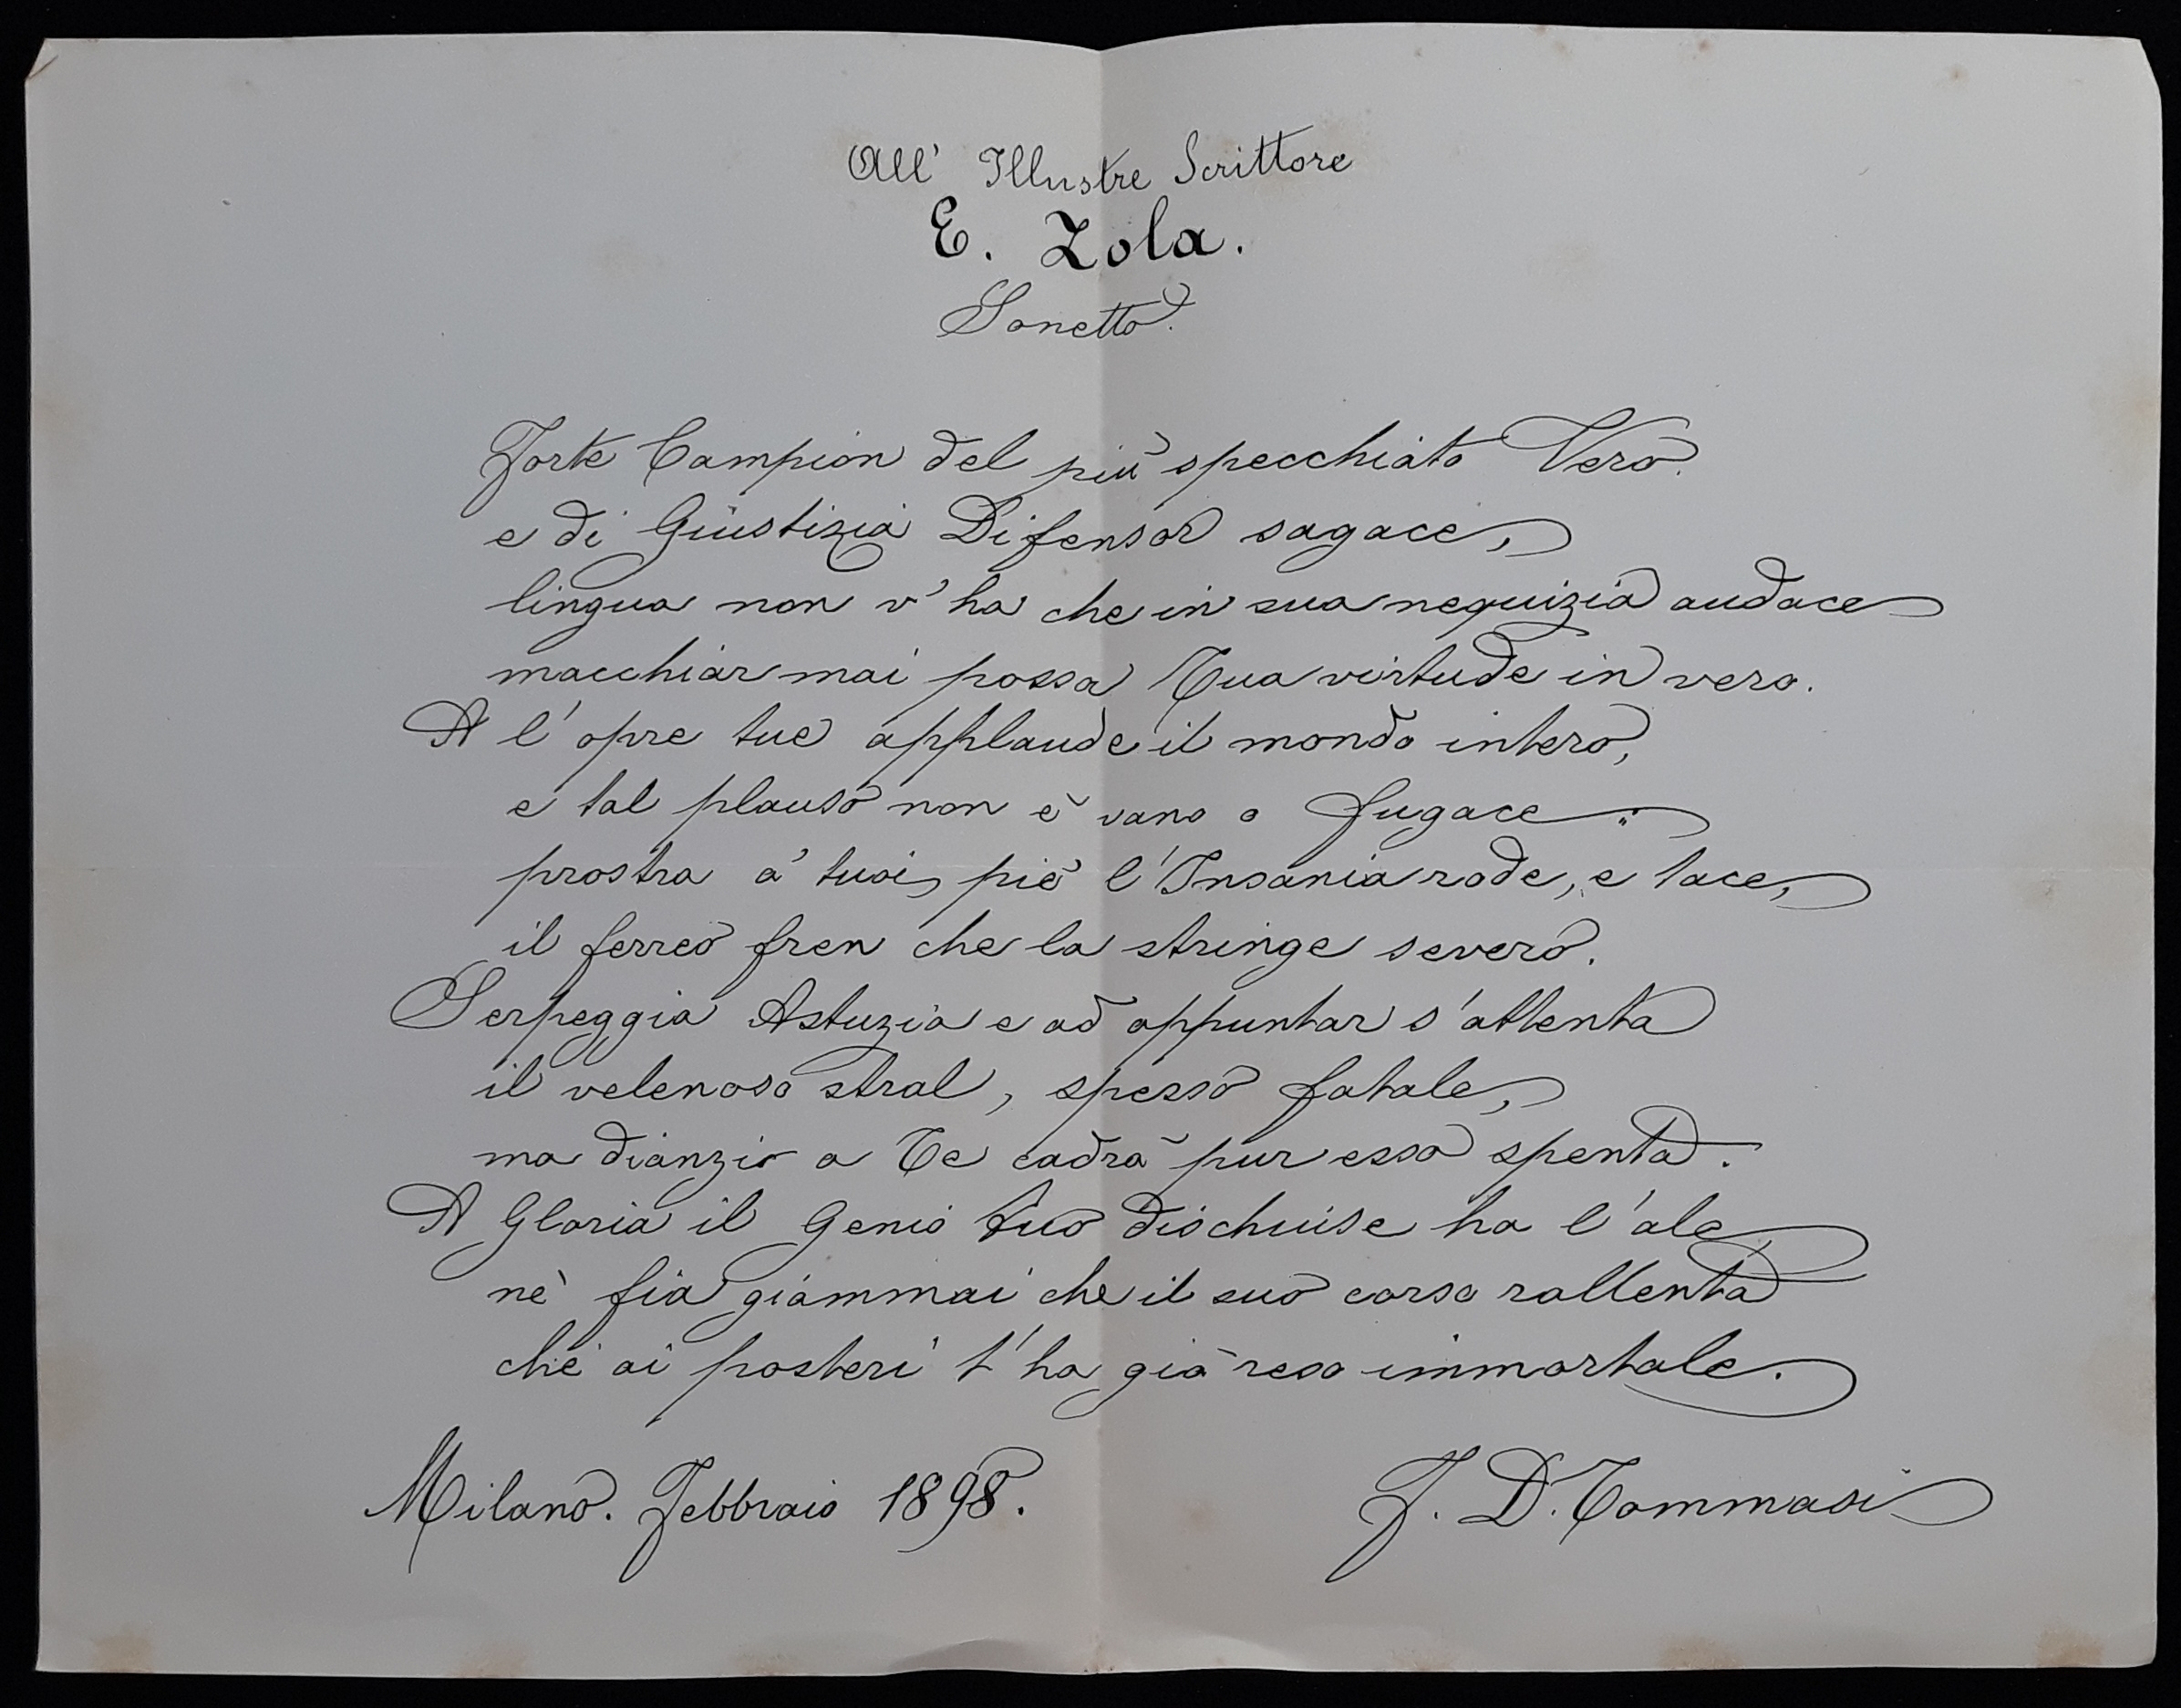 All' Illustre Scrittore
E. Zola.
Sonetto.
Forte Campion del più specchiato Vero
e di Giustizia Difensor sagace,
lingua non v'ha che in sua nequizia audace
macchiar mai possa Tua virtude in vero.
A l'opre tue applaude il mondo intero,
e tal plauso non è vano o fugace:
prostra a' tuoi piè l'Insania rode, e tace,
il ferreo fren che la stringe severo.
Serpeggia Astuzia e ad appuntar s'attenta
il velenoso stral, spesso fatale,
ma dianzi a Te cadrà pur essa spenta.
A Gloria il Genio tuo dischiuse ha l'ale
nè fia giammai che il suo corso rallenta
chè ai posteri t'ha già reso immortale.
Milano. Febbraio 1898.
F. D. Tommasi